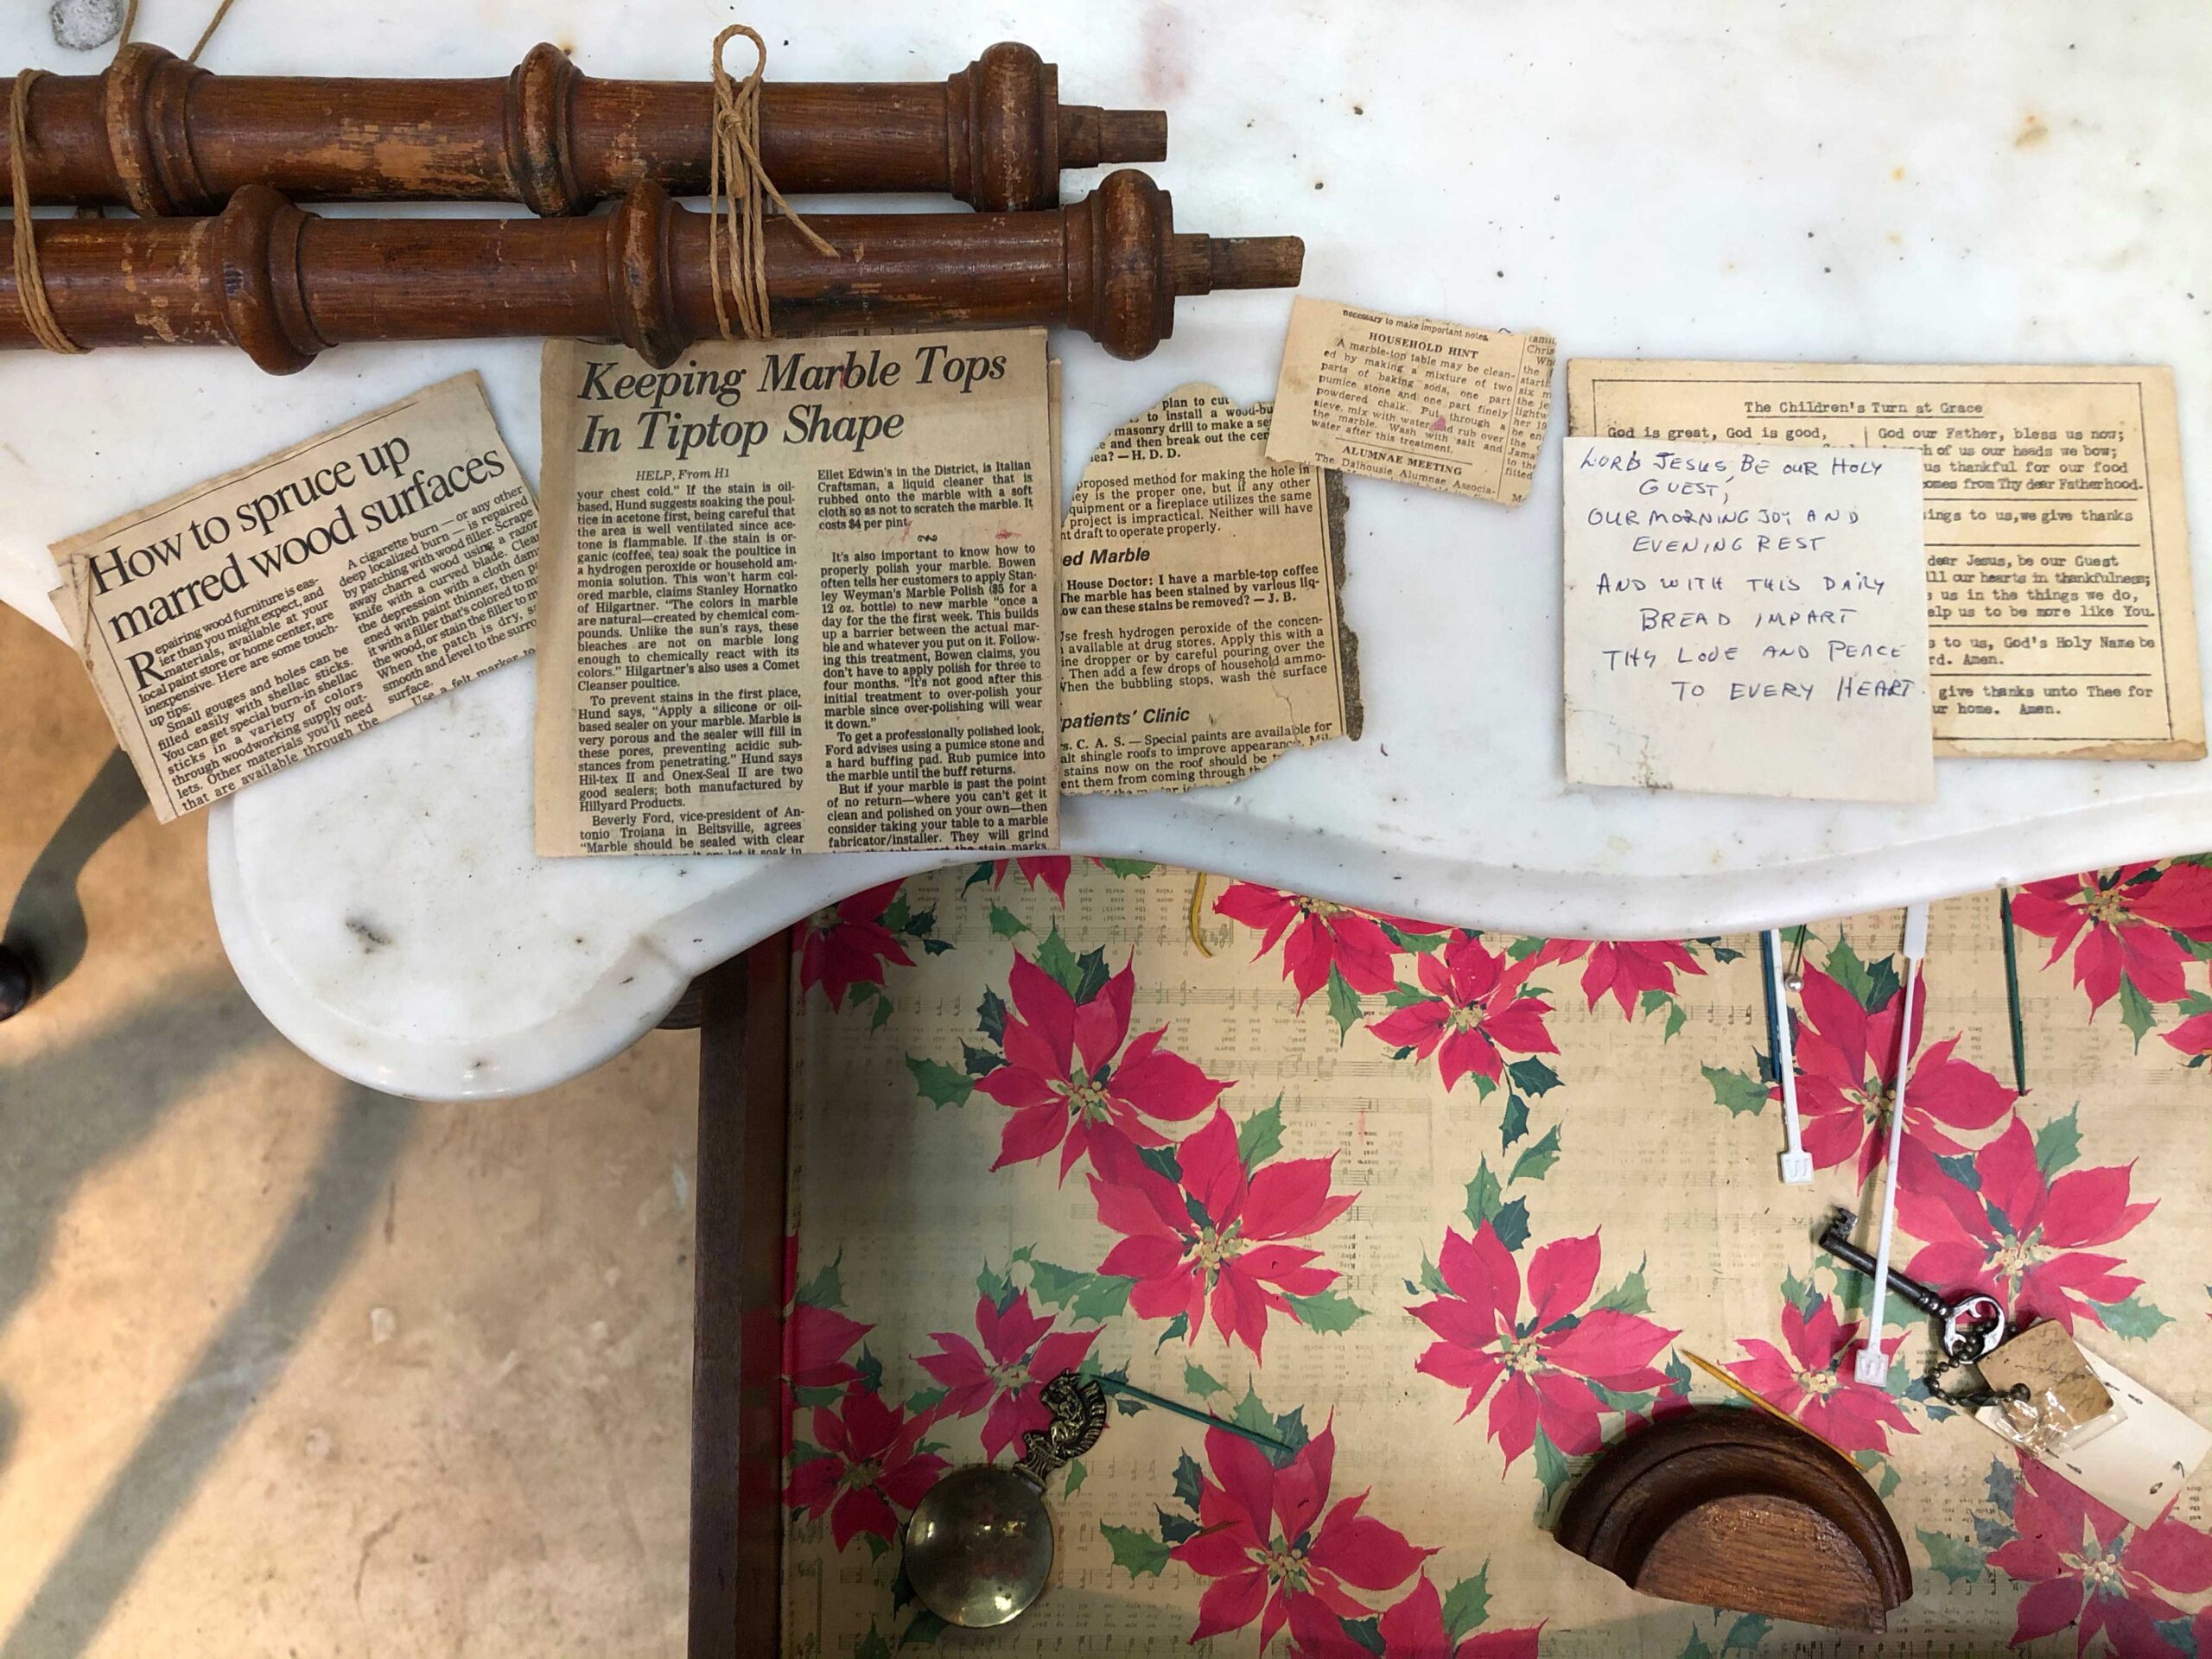 How to spruce up
marred wood surfaces
Repairing wood furniture is eas-
ier than you might expect, and
materials, available at your
local paint store or home center, are
inexpensive. Here are some touch-
up tips:
Small gouges and holes can be
filled easily with shellac sticks.
You can get special burn-in shellac
sticks in a variety of colors
through woodworking supply out-
lets.
Other materials you'll need
that are available through the
A cigarette burn — or any other
deep localized burn — is repaired
by patching with wood filler. Scrape
away charred wood using a razor
knife with a curved blade. Clean
the depression with a cloth damp-
ened with paint thinner, then
it with a filler that's colored to
the wood, or stain the filler to
When the patch is dry,
smooth and level to the
surface.
Use a felt marker to
Keeping Marble Tops
In Tiptop Shape
HELP, From H1
your chest cold." If the stain is oil-
based, Hund suggests soaking the poul-
tice in acetone first, being careful that
the area is well ventilated since ace-
tone is flammable. If the stain is or-
ganic (coffee, tea) soak the poultice in
a hydrogen peroxide or household am-
monia solution. This won't harm col-
ored marble, claims Stanley Hornatko
of Hilgartner. "The colors in marble
are natural—created by chemical com-
pounds. Unlike the sun's rays, these
bleaches are not on marble long
enough to chemically react with its
colors." Hilgartner's also uses a Comet
Cleanser poultice.
To prevent stains in the first place,
Hund says, "Apply a silicone or oil-
based sealer on your marble. Marble is
very porous and the sealer will fill in
these pores, preventing acidic sub-
stances from penetrating." Hund says
Hil-tex II and Onex-Seal II are two
good sealers; both manufactured by
Hillyard Products.
Beverly Ford, vice-president of An-
tonio Troiana in Beltsville, agrees
"Marble should be sealed with clear
Ellet Edwin's in the District, is Italian
Craftsman, a liquid cleaner that is
rubbed onto the marble with a soft
cloth so as not to scratch the marble. It
costs $4 per pint.
It's also important to know how to
properly polish your marble. Bowen
often tells her customers to apply Stan-
ley Weyman's Marble Polish ($5 for a
12 oz. bottle) to new marble "once a
day for the the first week. This builds
up a barrier between the actual mar-
ble and whatever you put on it. Follow-
ing this treatment, Bowen claims, you
don't have to apply polish for three to
four months. "It's not good after this
initial treatment to over-polish your
marble since over-polishing will wear
it down."
To get a professionally polished look,
Ford advises using a pumice stone and
a hard buffing pad. Rub pumice into
the marble until the buff returns.
But if your marble is past the point
of no return—where you can't get it
clean and polished on your own—then
consider taking your table to a marble
fabricator/installer. They will grind
the stain marks
plan to cut
to install a wood-bu
masonry drill to make a se
and then break out the cen
ea? — H. D. D.
proposed method for making the hole in
ey is the proper one, but if any other
quipment or a fireplace utilizes the same
project is impractical. Neither will have
nt draft to operate properly.
ed Marble
House Doctor: I have a marble-top coffee
The marble has been stained by various liq-
ow can these stains be removed? — J. B.
Use fresh hydrogen peroxide of the concen-
available at drug stores. Apply this with a
ine dropper or by careful pouring over the
Then add a few drops of household ammo-
When the bubbling stops, wash the surface
patients' Clinic
s. C. A. S. — Special paints are available for
alt shingle roofs to improve appearance.
stains now on the roof should be
ent them from coming through
necessary to make important notes.
HOUSEHOLD HINT
A marble-top table may be clean-
ed by making a mixture of two
parts of baking soda, one part
pumice stone and one part finely
powdered chalk. Put through a
sieve, mix with water and rub over
the marble. Wash with salt and
water after this treatment.
ALUMNAE MEETING
The Dalhousie Alumnae Associa-
The Children's Turn at Grace
God is great, God is good,
God our Father, bless us now;
ch of us our heads we bow;
us thankful for our food
omes from Thy dear Fatherhood.
ings to us, we give thanks
dear Jesus, be our Guest
ll our hearts in thankfulness;
us in the things we do,
elp us to be more like You.
s to us, God's Holy Name be
rd. Amen.
give thanks unto Thee for
ur home. Amen.
LORD JESUS, BE OUR HOLY
GUEST,
OUR MORNING JOY AND
EVENING REST
AND WITH THIS DAILY
BREAD IMPART
THY LOVE AND PEACE
TO EVERY HEART.